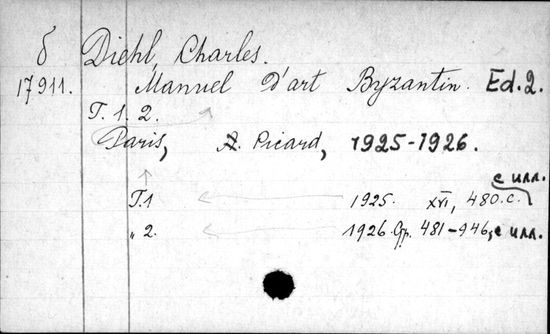 δ Diehl, Charles.
17911. Manuel d'art Byzantin. Ed. 2.
T. 1. 2.
Paris, A. Picard, 1925-1926.
с илл.
T. 1 1925. XVI, 480 с.
" 2. 1926. Pp. 481-946, с илл.